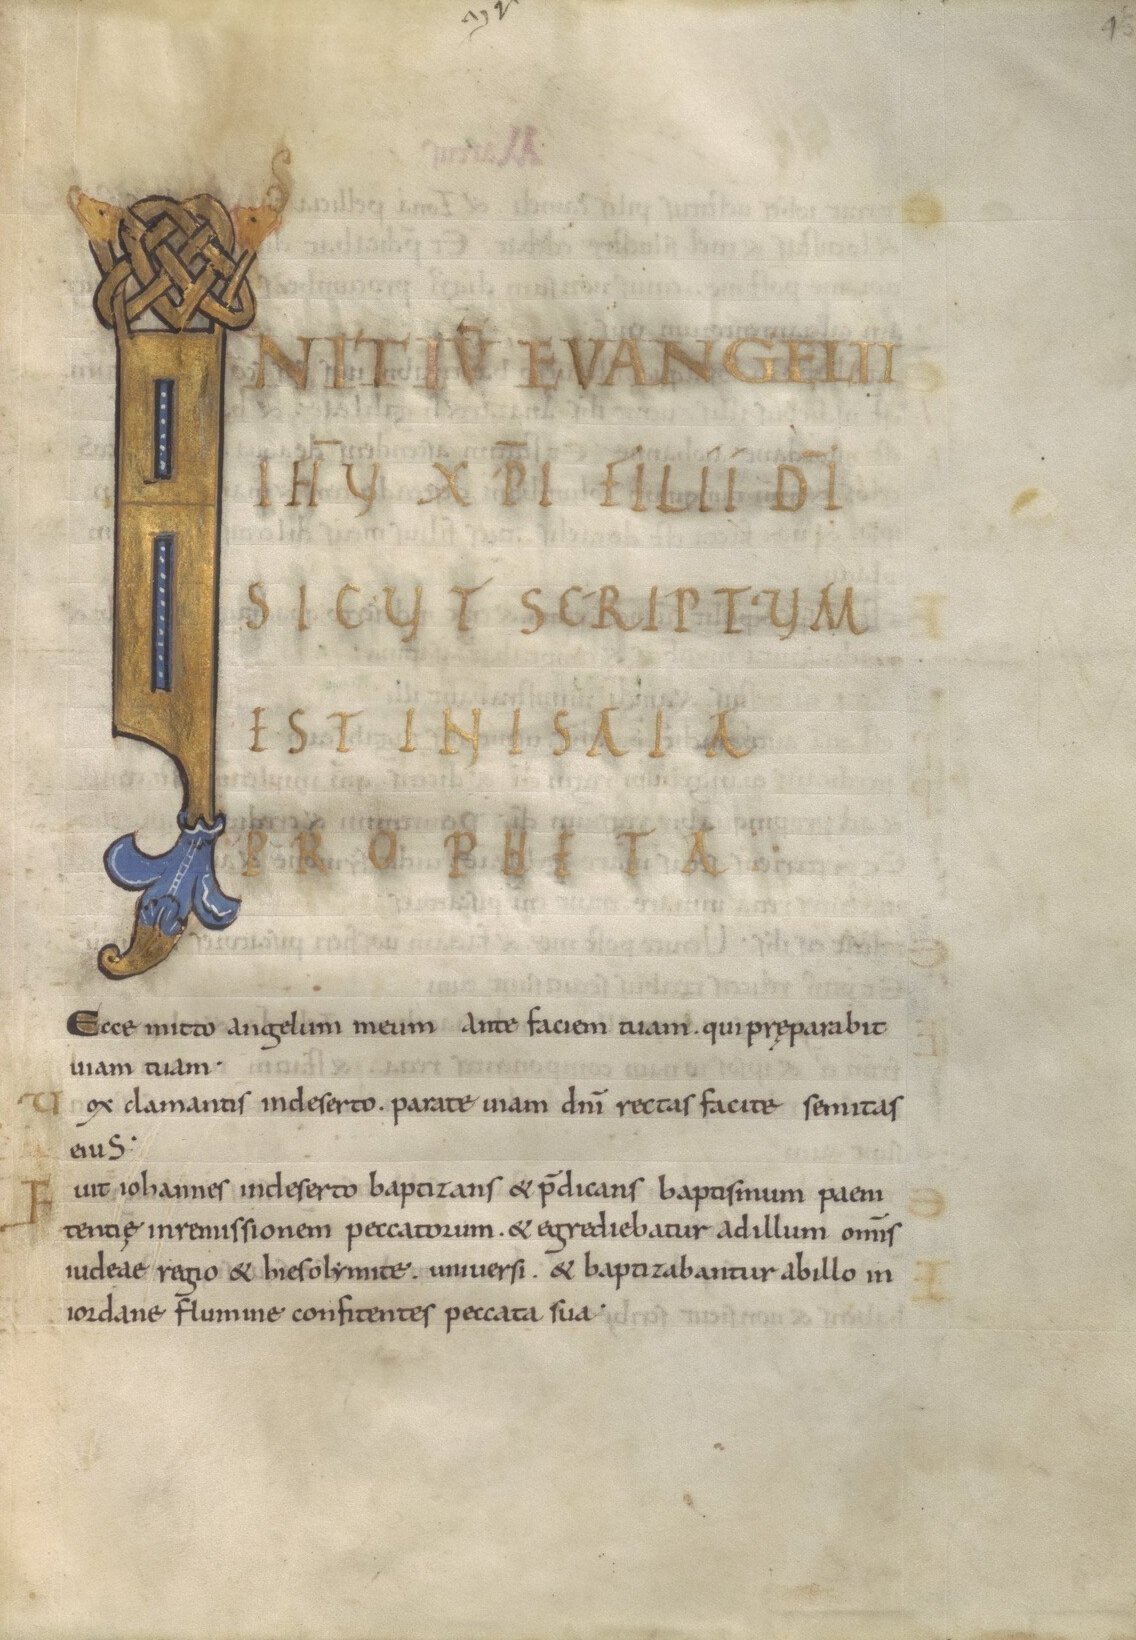 INITIŪ EVANGELII
IHY̅ XP̅I FILII DI̅
SICUT SCRIPTUM
EST IN ISAIA
PROPHETA ·
Ecce mitto angelum meum ante faciem tuam . qui pręparabit
uiam tuam ·
Vox clamantis indeserto . parate uiam dnı̅ rectas facite semitas
eiuS ·
Fuit iohannes indeserto baptizans & p̅dicans baptismum paeni
tentię inremissionem peccatorum . & egrediebatur adillum om̅s
iudeae regio & hierosolymite . uniuersi . & baptizabantur abillo in
iordane flumine confitentes peccata sua ·